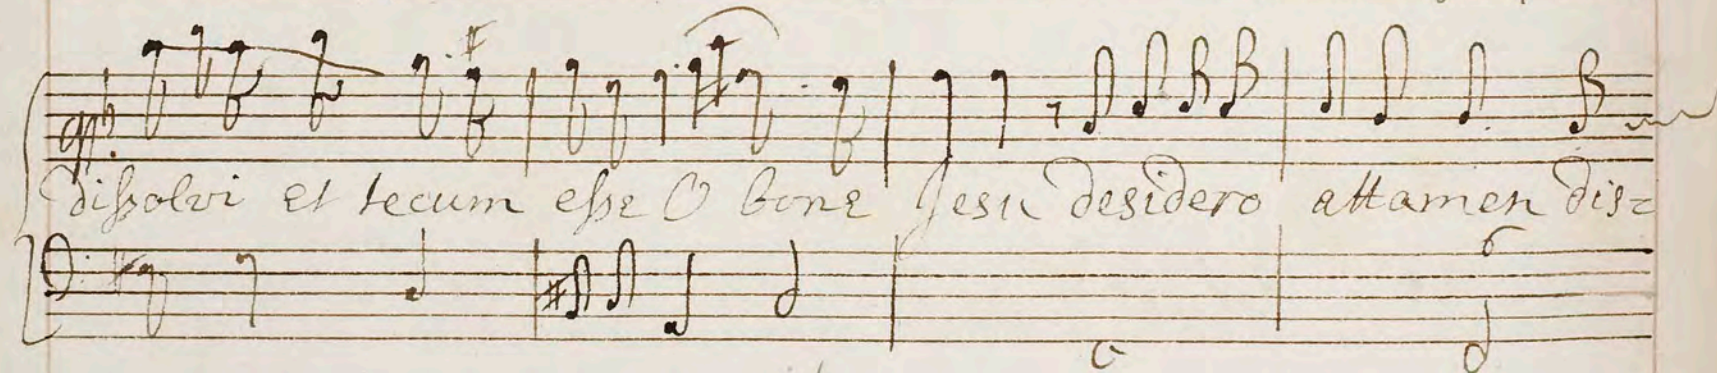 dissolvi et tecum esse O bone Jesu desidero attamen dis=
6